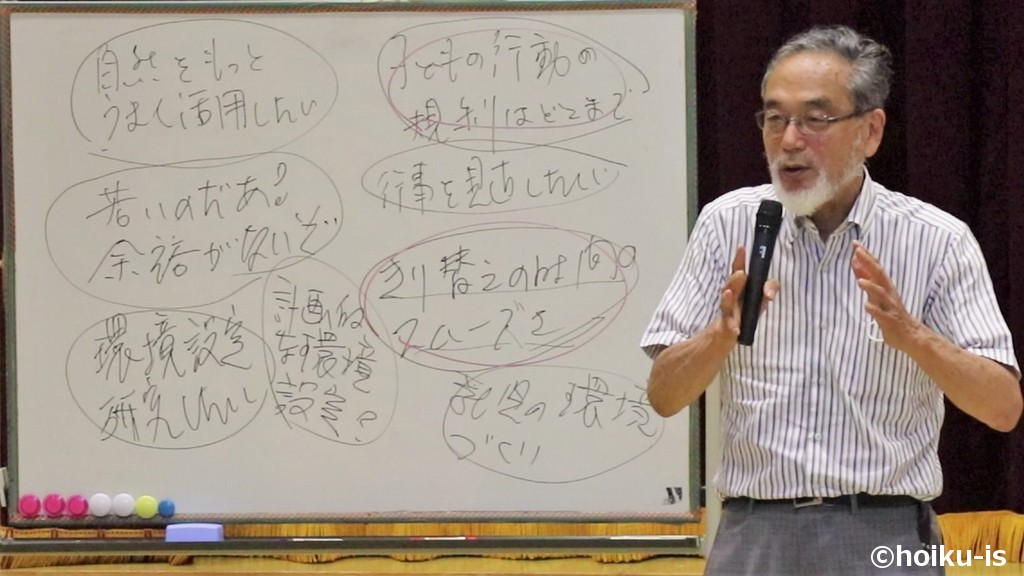 自然をもっと
うまく活用したい
子どもの行動の
規制はどこまで
行事を見直したい
若いのだあ?
余裕がないぞ
切り替えの時間の
スムーズさ
計画的
な環境
設定?
環境設定
研究したい
の環境
づくり
©hoiku-is